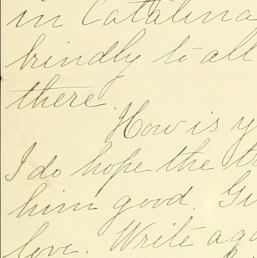 in Catalina
kindly to all
there.
How is y
I do hope the tr
him good. Gi
love. Write aga